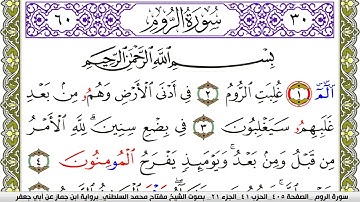 ٣٠ سُورَةُ الرُّومِ ٦٠
بِسْمِ اللَّهِ الرَّحْمَٰنِ الرَّحِيمِ
الٓمٓ ١ غُلِبَتِ الرُّومُ ٢ فِي أَدْنَى الْأَرْضِ وَهُمُۥ مِنۢ بَعْدِ
غَلَبِهِمُۥ سَيَغْلِبُونَ ٣ فِي بِضْعِ سِنِينَۗ لِلَّهِ الْأَمْرُ
مِن قَبْلُ وَمِنۢ بَعْدُۚ وَيَوْمَئِذٍ يَفْرَحُ الْمُومِنُونَ ٤
سورة الروم . الصفحة ٤٠٥ . الحزب ٤١ . الجزء ٢١ . بصوت الشيخ مفتاح محمد السلطني . برواية ابن جماز عن أبي جعفر